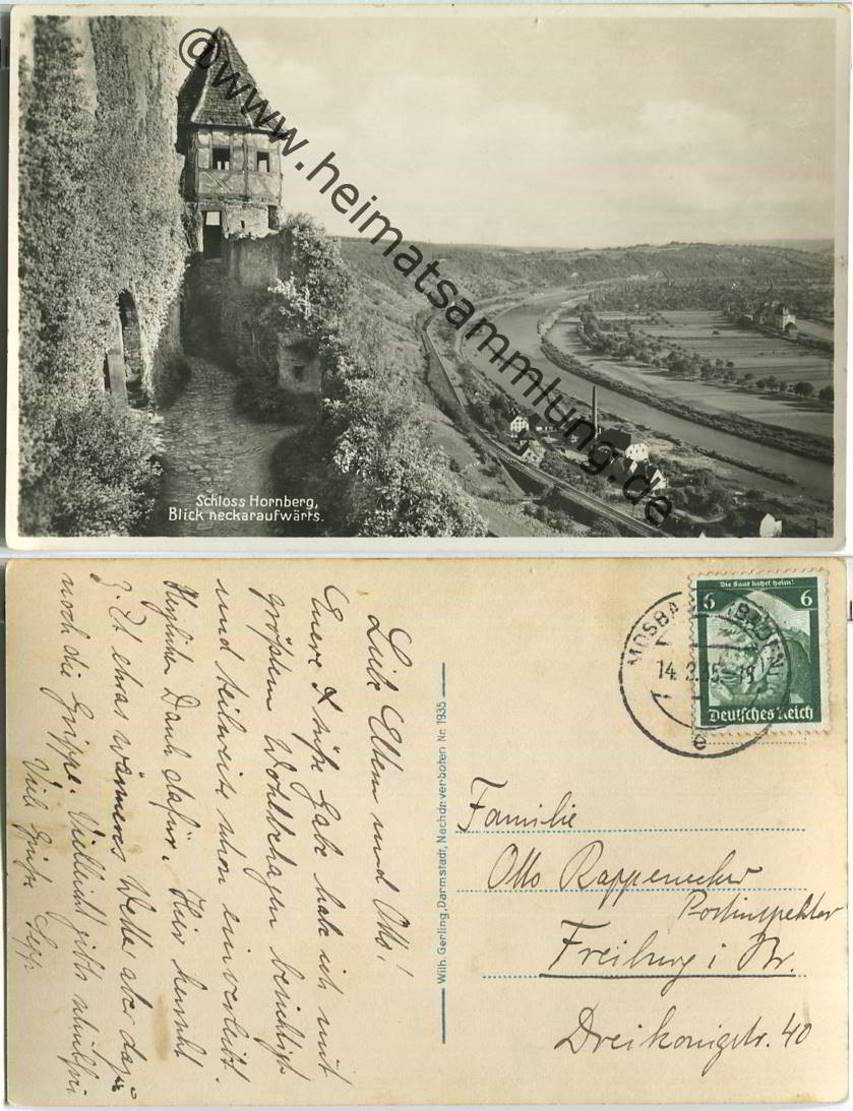 @www.heimatsammlung.de
Schloss Hornberg,
Blick neckaraufwärts.
Liebe Eltern und Otto!
Euere süße Gabe hab ich mit
größtem Wohlbehagen besichtigt
und teilweise schon einverleibt.
Herzlichen Dank dafür. Hier herrscht
z. Zt etwas wärmeres Wetter aber dazu
noch die Grippe. Vielleicht gibts schulfrei
Viele Grüße Sepp
Wilh. Gerling, Darmstadt, Nachdr. verboten Nr. 1935
MOSBACH (BADEN)
14.3.35.-19
Die Saar kehrt heim!
6 6
Deutsches Reich
Familie
Otto Rappenecker
Postinspektor
Freiburg i Br.
Dreikönigstr. 40